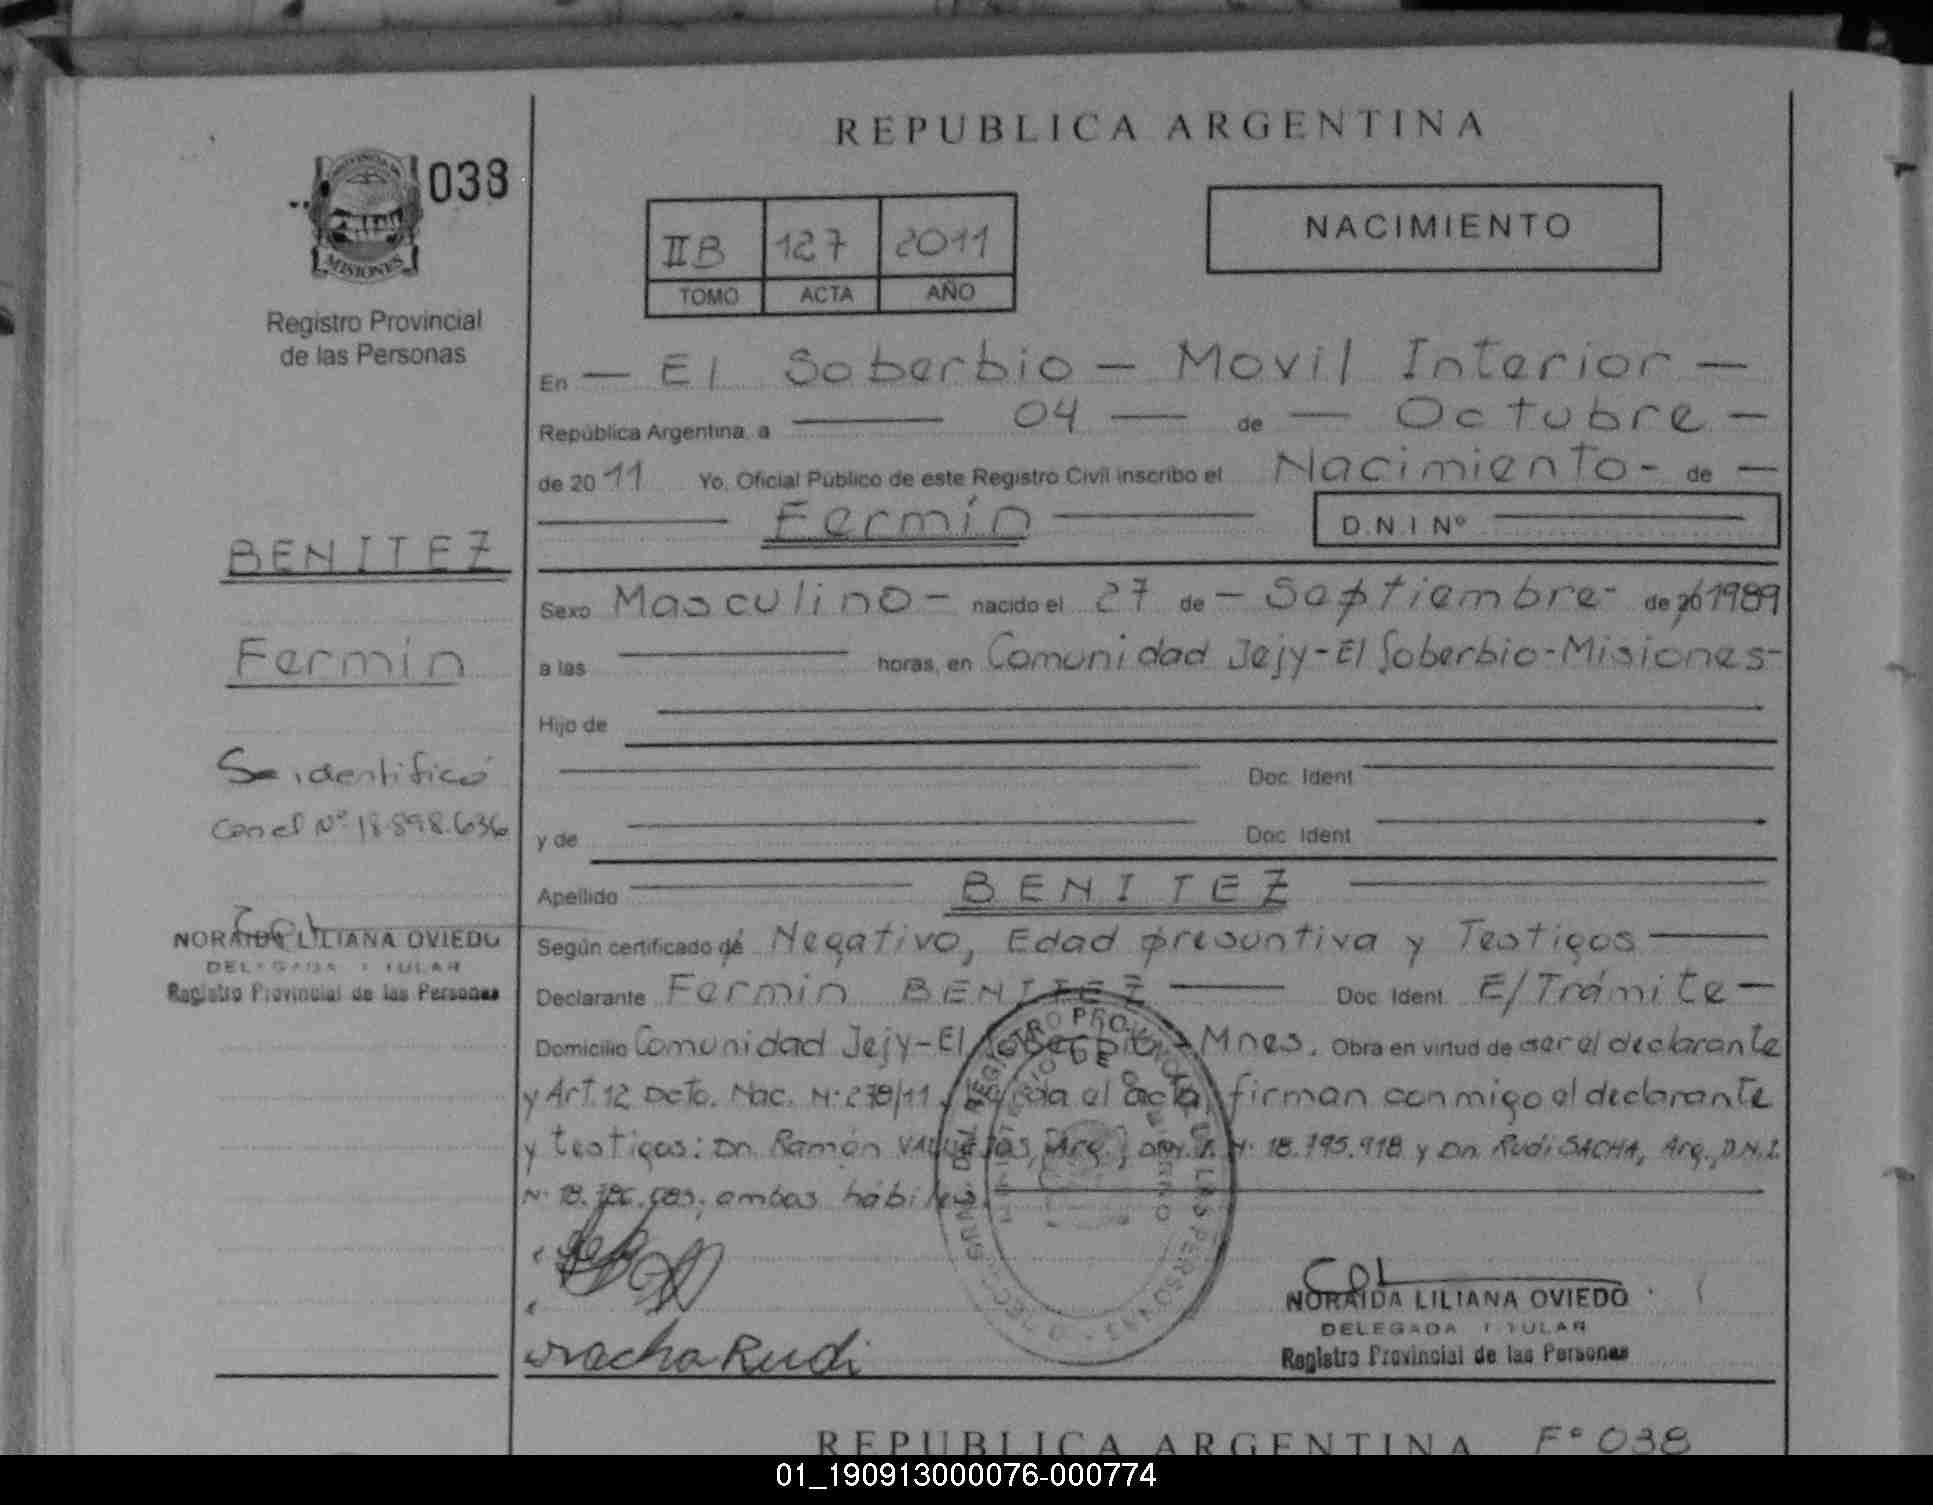 REPUBLICA ARGENTINA
038
PROVINCIA DE
MISIONES
Registro Provincial
de las Personas
IIB 127 2011
TOMO ACTA AÑO
NACIMIENTO
En — El Soberbio — Movil Interior —
República Argentina, a — 04 — de — Octubre —
de 2011 Yo, Oficial Público de este Registro Civil inscribo el Nacimiento - de —
— Fermín — D.N.I Nº —
BENITEZ
Fermín
Se identificó
con el Nº 18.898.636
NORAIDA LILIANA OVIEDO
DELEGADA TITULAR
Registro Provincial de las Personas
Sexo Masculino - nacido el 27 de - Septiembre - de 20 1989
a las — horas, en Comunidad Jejy - El Soberbio - Misiones -
Hijo de
Doc. Ident
y de Doc. Ident
Apellido — BENITEZ —
Según certificado de Negativo, Edad presuntiva y Testigos —
Declarante Fermín BENITEZ — Doc. Ident. E/Trámite —
Domicilio Comunidad Jejy - El Soberbio - Mnes. Obra en virtud de ser el declarante
y Art. 12 Dcto. Nac. Nº 278/11. Leída el acta, firman conmigo el declarante
y testigos: Dn. Ramón Arg., D.N.I. Nº 18.795.918 y Dn. Rudi SACHA, Arg., D.N.I.
Nº ambos hábiles.
REGISTRO PROVINCIAL DE LAS PERSONAS
MINISTERIO DE GOBIERNO
Sacha Rudi
NORAIDA LILIANA OVIEDO
DELEGADA TITULAR
Registro Provincial de las Personas
REPUBLICA ARGENTINA Fº 038
01_190913000076-000774